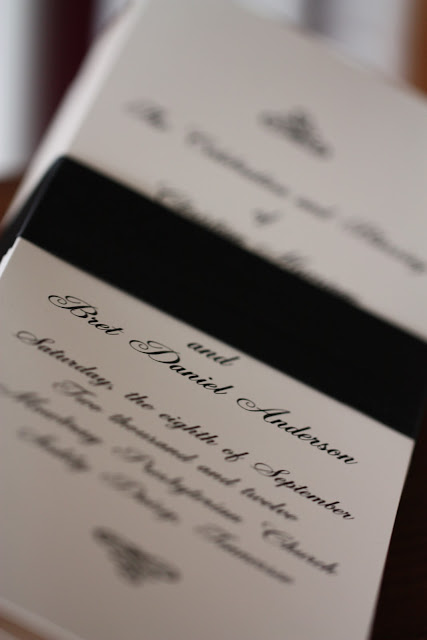 The Celebration and Blessing
of
and
Bret Daniel Anderson
Saturday, the eighth of September
Two thousand and twelve
Presbyterian Church
Soddy Daisy, Tennessee